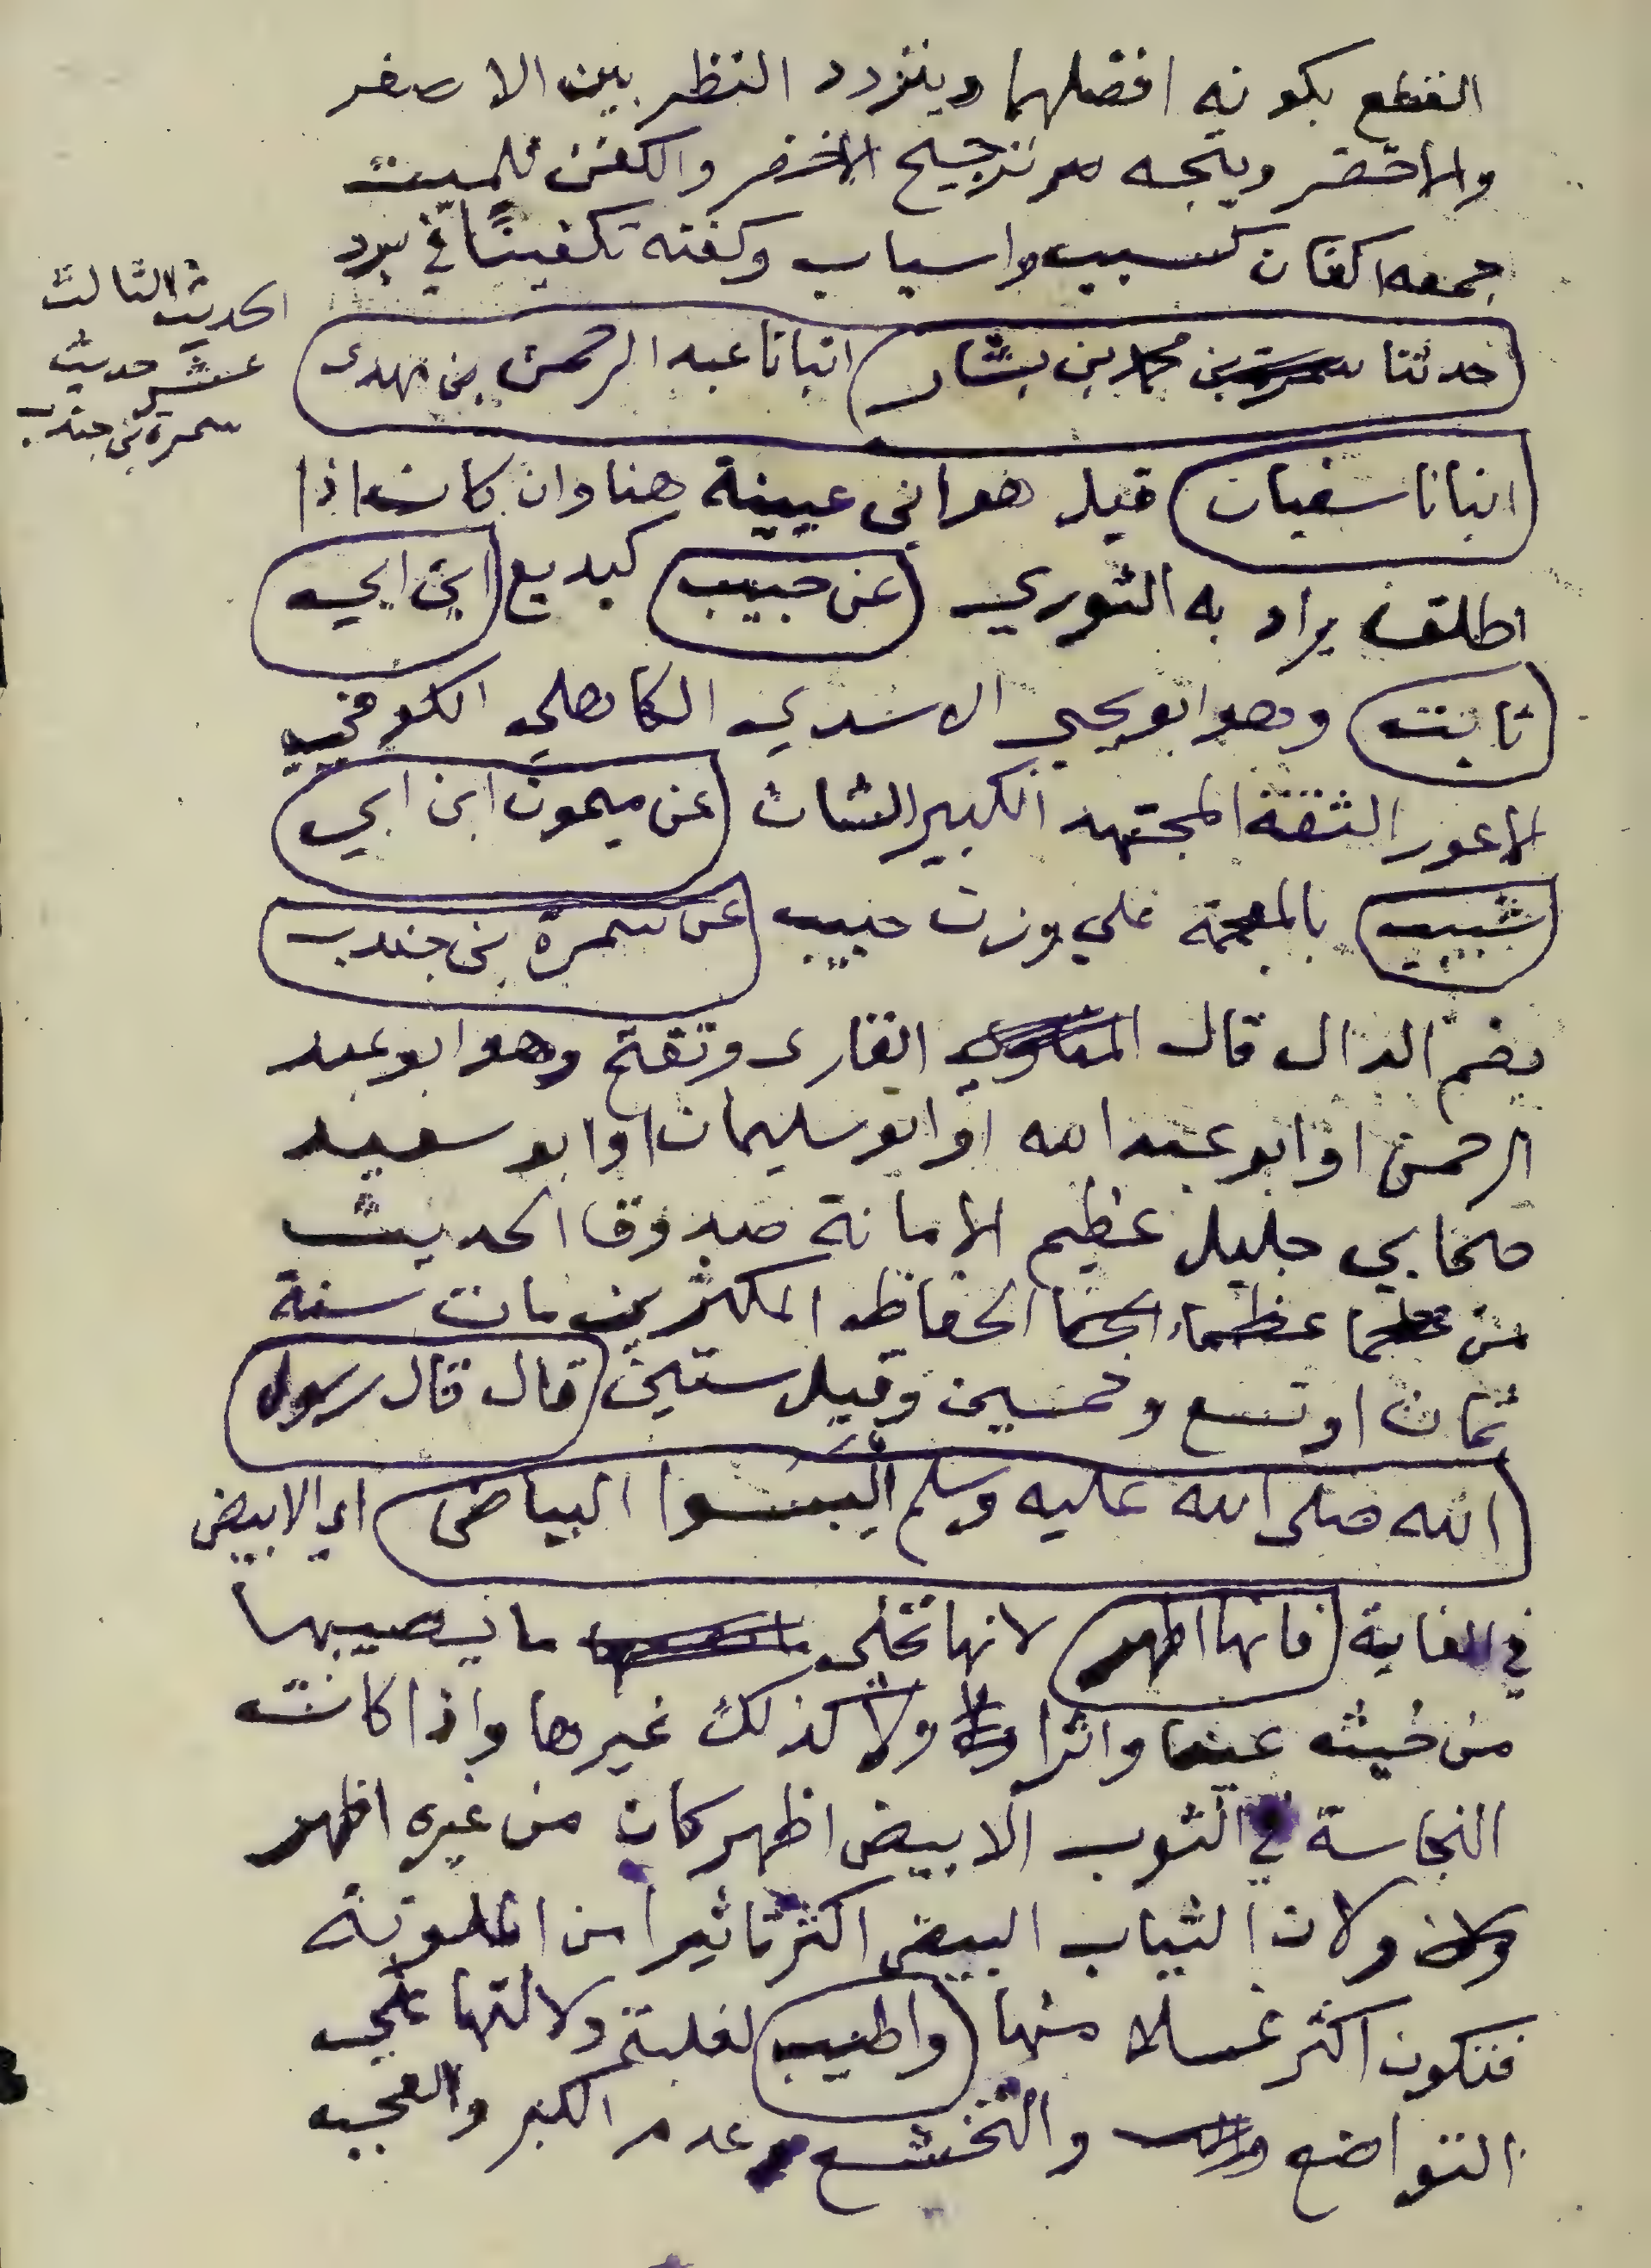 القطع بكونه افضلهما ويتردد النظر بين الاصفر
والاخضر ويتجه ترجيح الاخضر والكفن للميت
جمعه اكفان كسبب واسباب وكفنه تكفينًا في برد
الحديث الثالث
عشر حديث
سمرة بن جندب
حدثنا محمد بن بشار انبانا عبد الرحمن بن مهدى
انبانا سفيان قيل هو ابن عيينة هنا وان كان اذا
اطلق يراد به الثوري عن حبيب كبديع ابن ابي
ثابت وهو ابو يحيى الاسدي الكاهلي الكوفي
الاعور الثقة المجتهد الكبير الشان عن ميمون ابن ابي
شبيب بالمعجمة على وزن حبيب عن سمرة بن جندب
بضم الدال قال القارى وتفتح وهو ابو عبد
الرحمن او ابو عبد الله او ابو سليمان او ابو سعيد
صحابي جليل عظيم الامانة صدوق الحديث
من عظماء الحفاظ المكثرين مات سنة
ثمان او تسع وخمسين وقيل ستين قال قال رسول
الله صلى الله عليه وسلم البسوا البياض اي الابيض
في الغاية فانها اطهر لانها تحكى ما يصيبها
من خبثه عينا واثرا ولا كذلك غيرها واذا كانت
النجاسة في الثوب الابيض اظهر كان من غيره اطهر
ولان الثياب البيض اكثر تاثيرا من الملونة
فتكون اكثر غسلا منها واطيب لغلبة دلالتها على
التواضع والتخشع وعدم الكبر والعجب